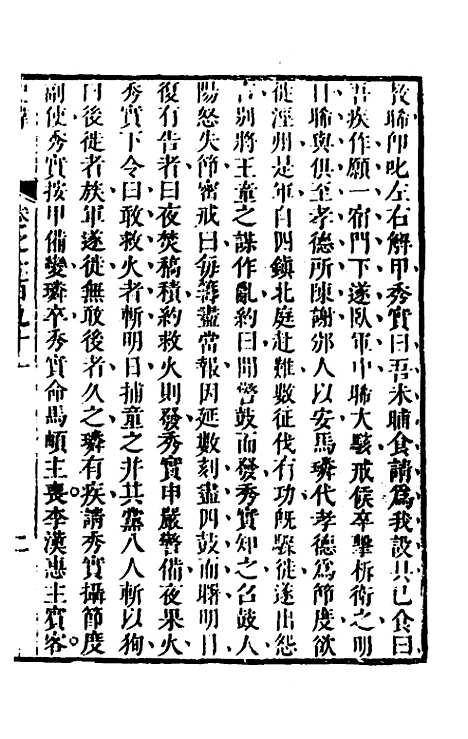 教晞卽叱左右解甲秀實曰吾未晡食請爲我設具已食曰
吾疾作願一宿門下遂臥軍中晞大駭戒候卒擊柝衛之明
日晞與俱至孝德所陳謝邠人以安馬璘代孝德爲節度欲
徙涇州是軍自四鎮北庭赴難數征伐有功旣驟徙遂出怨
言別將王童之謀作亂約曰聞警鼓而發秀實知之召鼓人
陽怒失節密戒曰每籌盡當報因延數刻盡四鼓而曙明日
復有告者曰夜焚稿積約救火則發秀實申嚴警備夜果火
秀實下令曰敢救火者斬明日捕童之并其黨八人斬以狥
曰後徙者族軍遂徙無敢後者久之璘有疾請秀實攝節度
副使秀實按甲備變璘卒秀實命馬頔主喪李漢惠主賓客
卷之一百九十一
二